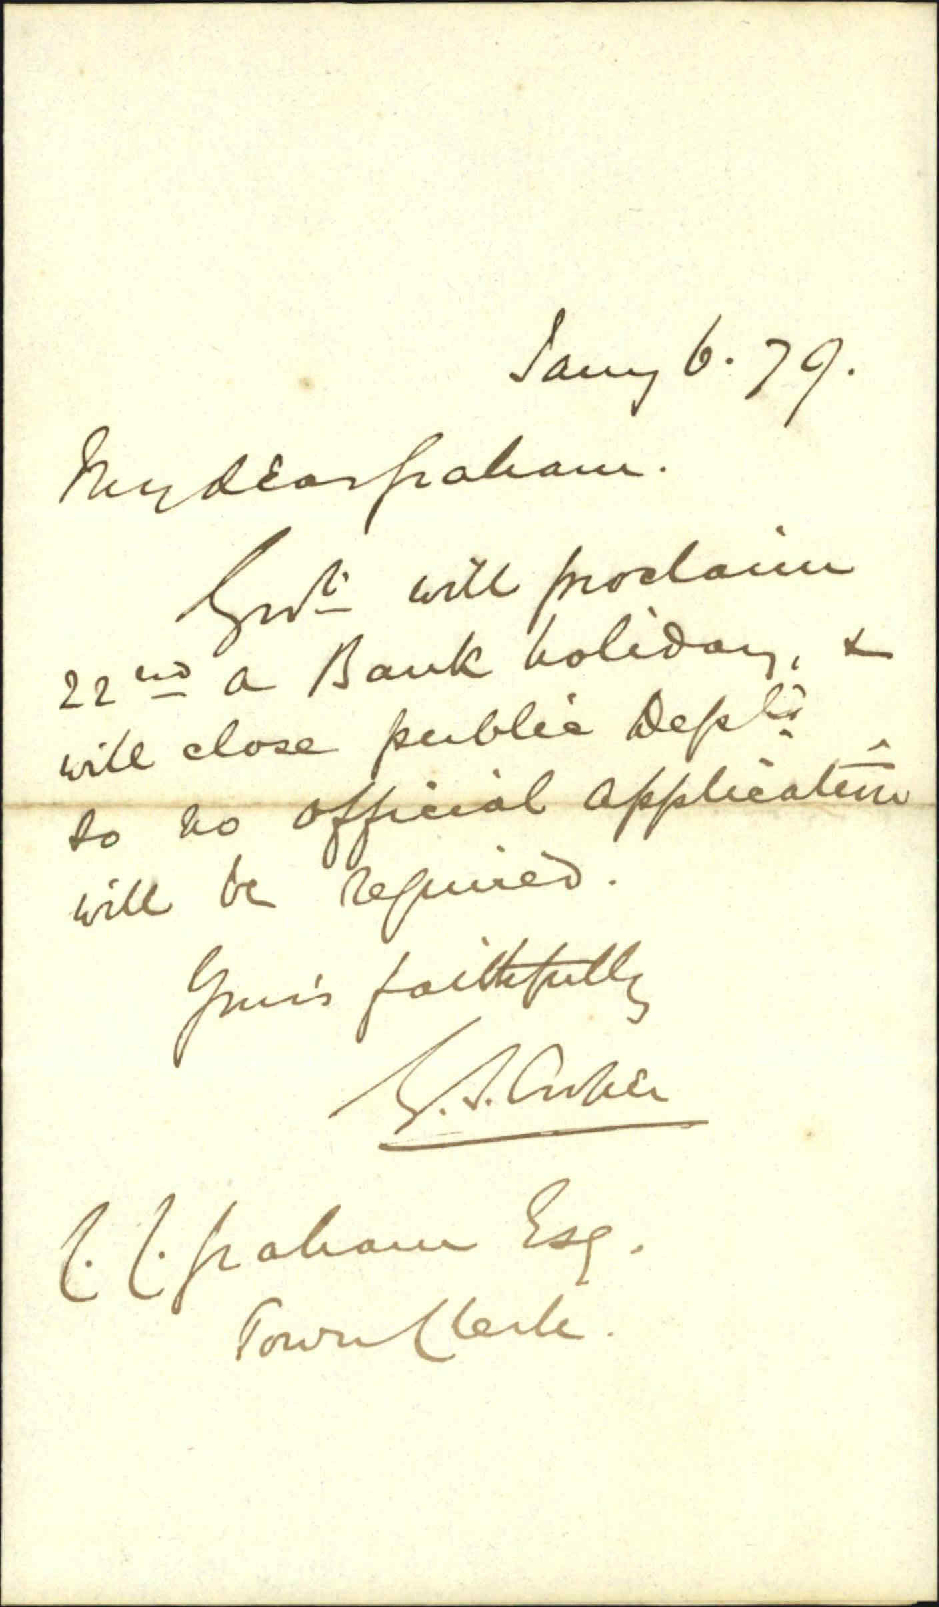 Jany 6. 79.
My dear Graham.
Govt. will proclaim
22nd a Bank holiday, &
will close public Depts.
so no official application
will be required.
Yours faithfully
G. S.
C. C. Graham Esq.
Town Clerk.